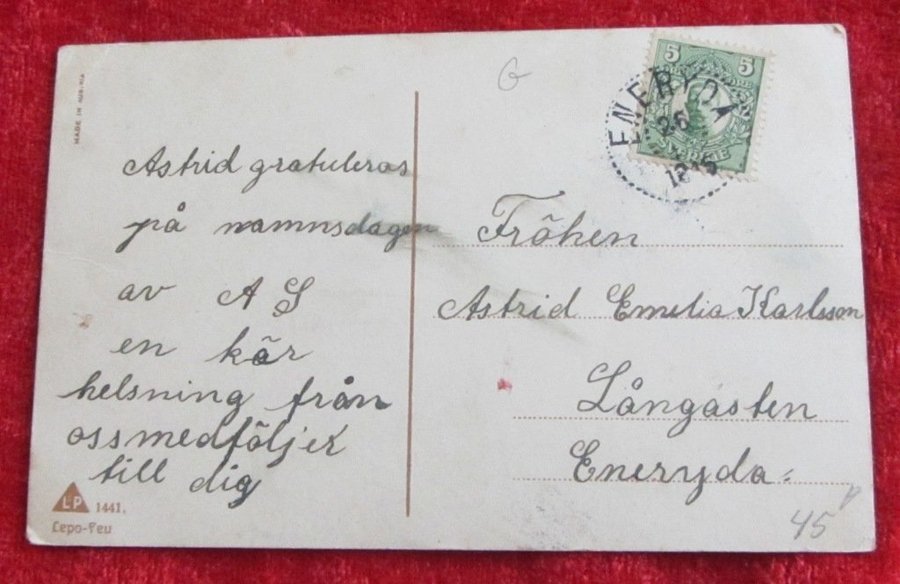 MADE IN AUSTRIA
G
Astrid gratuleras
på namnsdagen
av A S
en kär
helsning från
ossmedföljer
till dig
LP 1441.
Lepo-Feu
5 5
ENERYDA
26
Fröken
Astrid Emelia Karlsson
Långåsten
Eneryda.
45